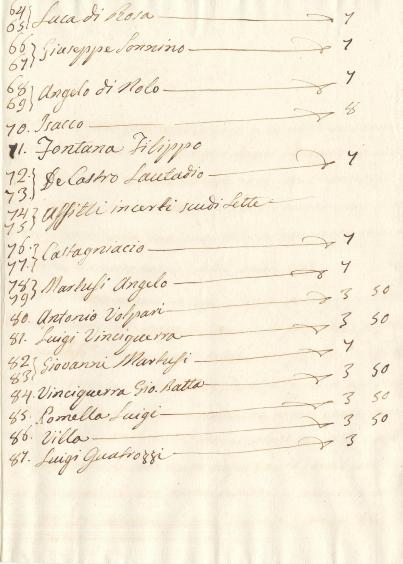 64}
65} Luca di Rosa 7
66}
67} Giuseppe Sonnino 7
68}
69} Angelo di Nolo 7
70. Isacco 8
71. Fontana Filippo
72.}
73.} De Castro Laudadio 7
74}
75} Affitti incerti scudi sette
76.}
77.} Castagniacio 7
78}
79} Martufi Angelo 7
80. Antonio Volpari 3 50
81. Luigi Vinciguerra 3 50
82}
83} Giovanni Martufi 7
84. Vinciguerra Gio. Batta 3 50
85. Pomella Luigi 3 50
86. Villa 3 50
87. Luigi Guatrozzi 3